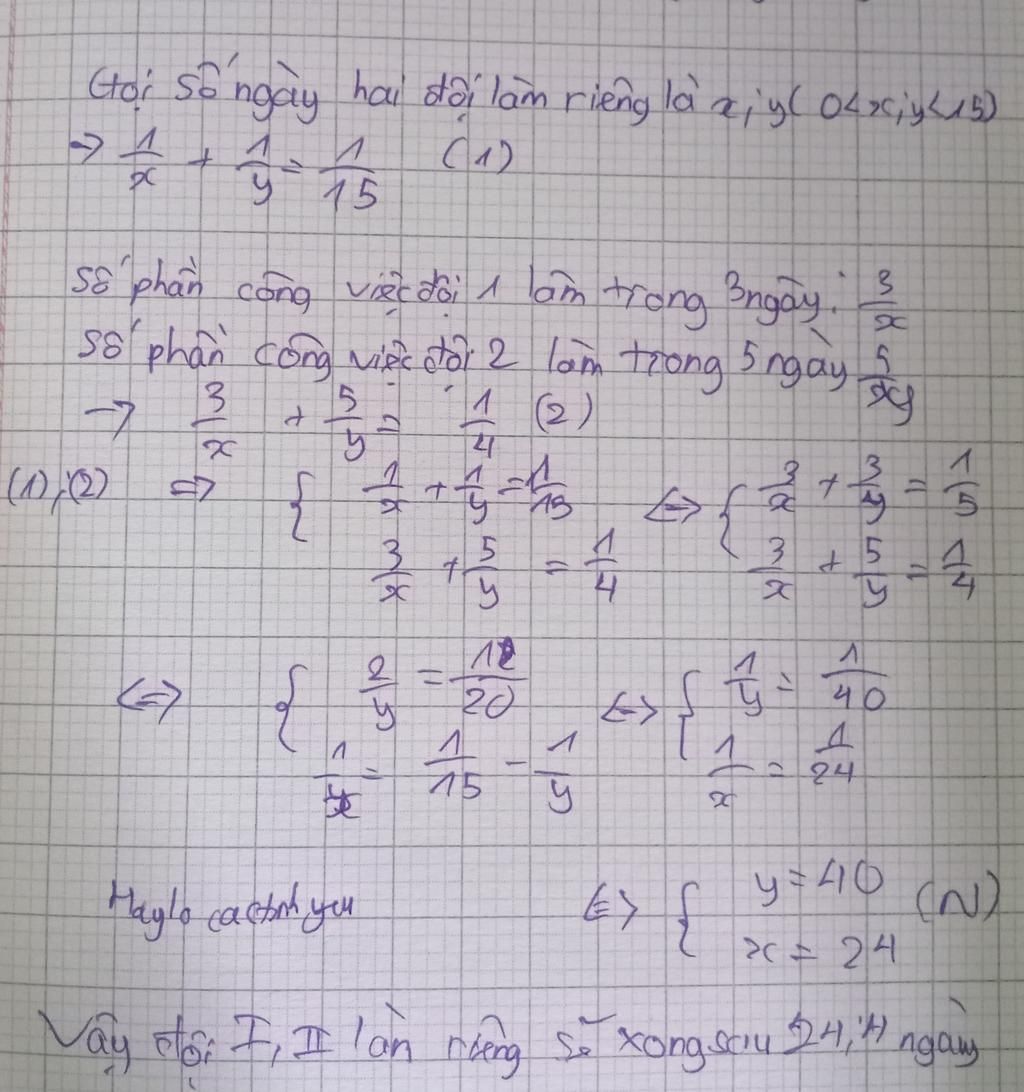 Gọi số ngày hai đội làm riêng là x, y ( 0 < x, y < 15)
=> 1/x + 1/y = 1/15 (1)
Số phần công việc đội 1 làm trong 3 ngày: 3/x
Số phần công việc đội 2 làm trong 5 ngày 5/xy
-> 3/x + 5/y = 1/4 (2)
(1), (2) => { 1/x + 1/y = 1/15 <=> { 3/x + 3/y = 1/5
3/x + 5/y = 1/4 3/x + 5/y = 1/4
<=> { 2/y = 1/20 <=> { 1/y = 1/40
1/x = 1/15 - 1/y 1/x = 1/24
<=> { y = 40 (N)
x = 24
Vậy đội I, II làn riêng sẽ xong sau 24, ngày